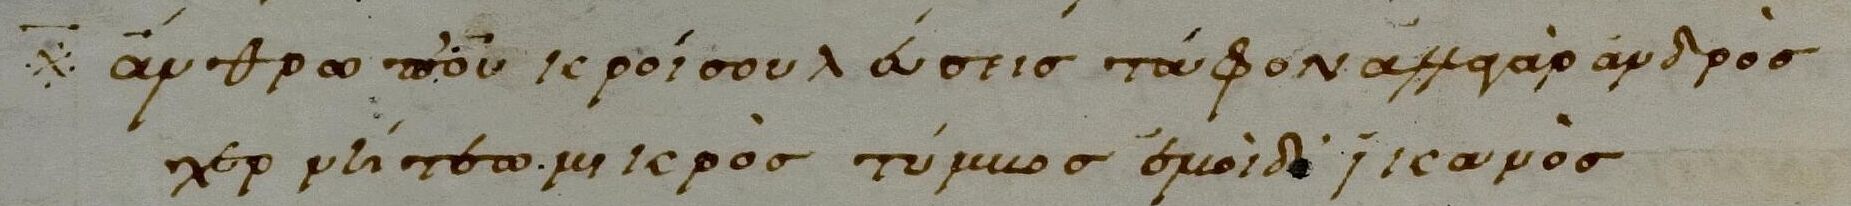 ἄνθρωπε οὐ κροίσου λεύσεις τάφον ἀλλὰ γὰρ ἀνδρὸς
χερνήτεω· μικρὸς τύμβος ἐμοὶ δ' ἱκανὸς